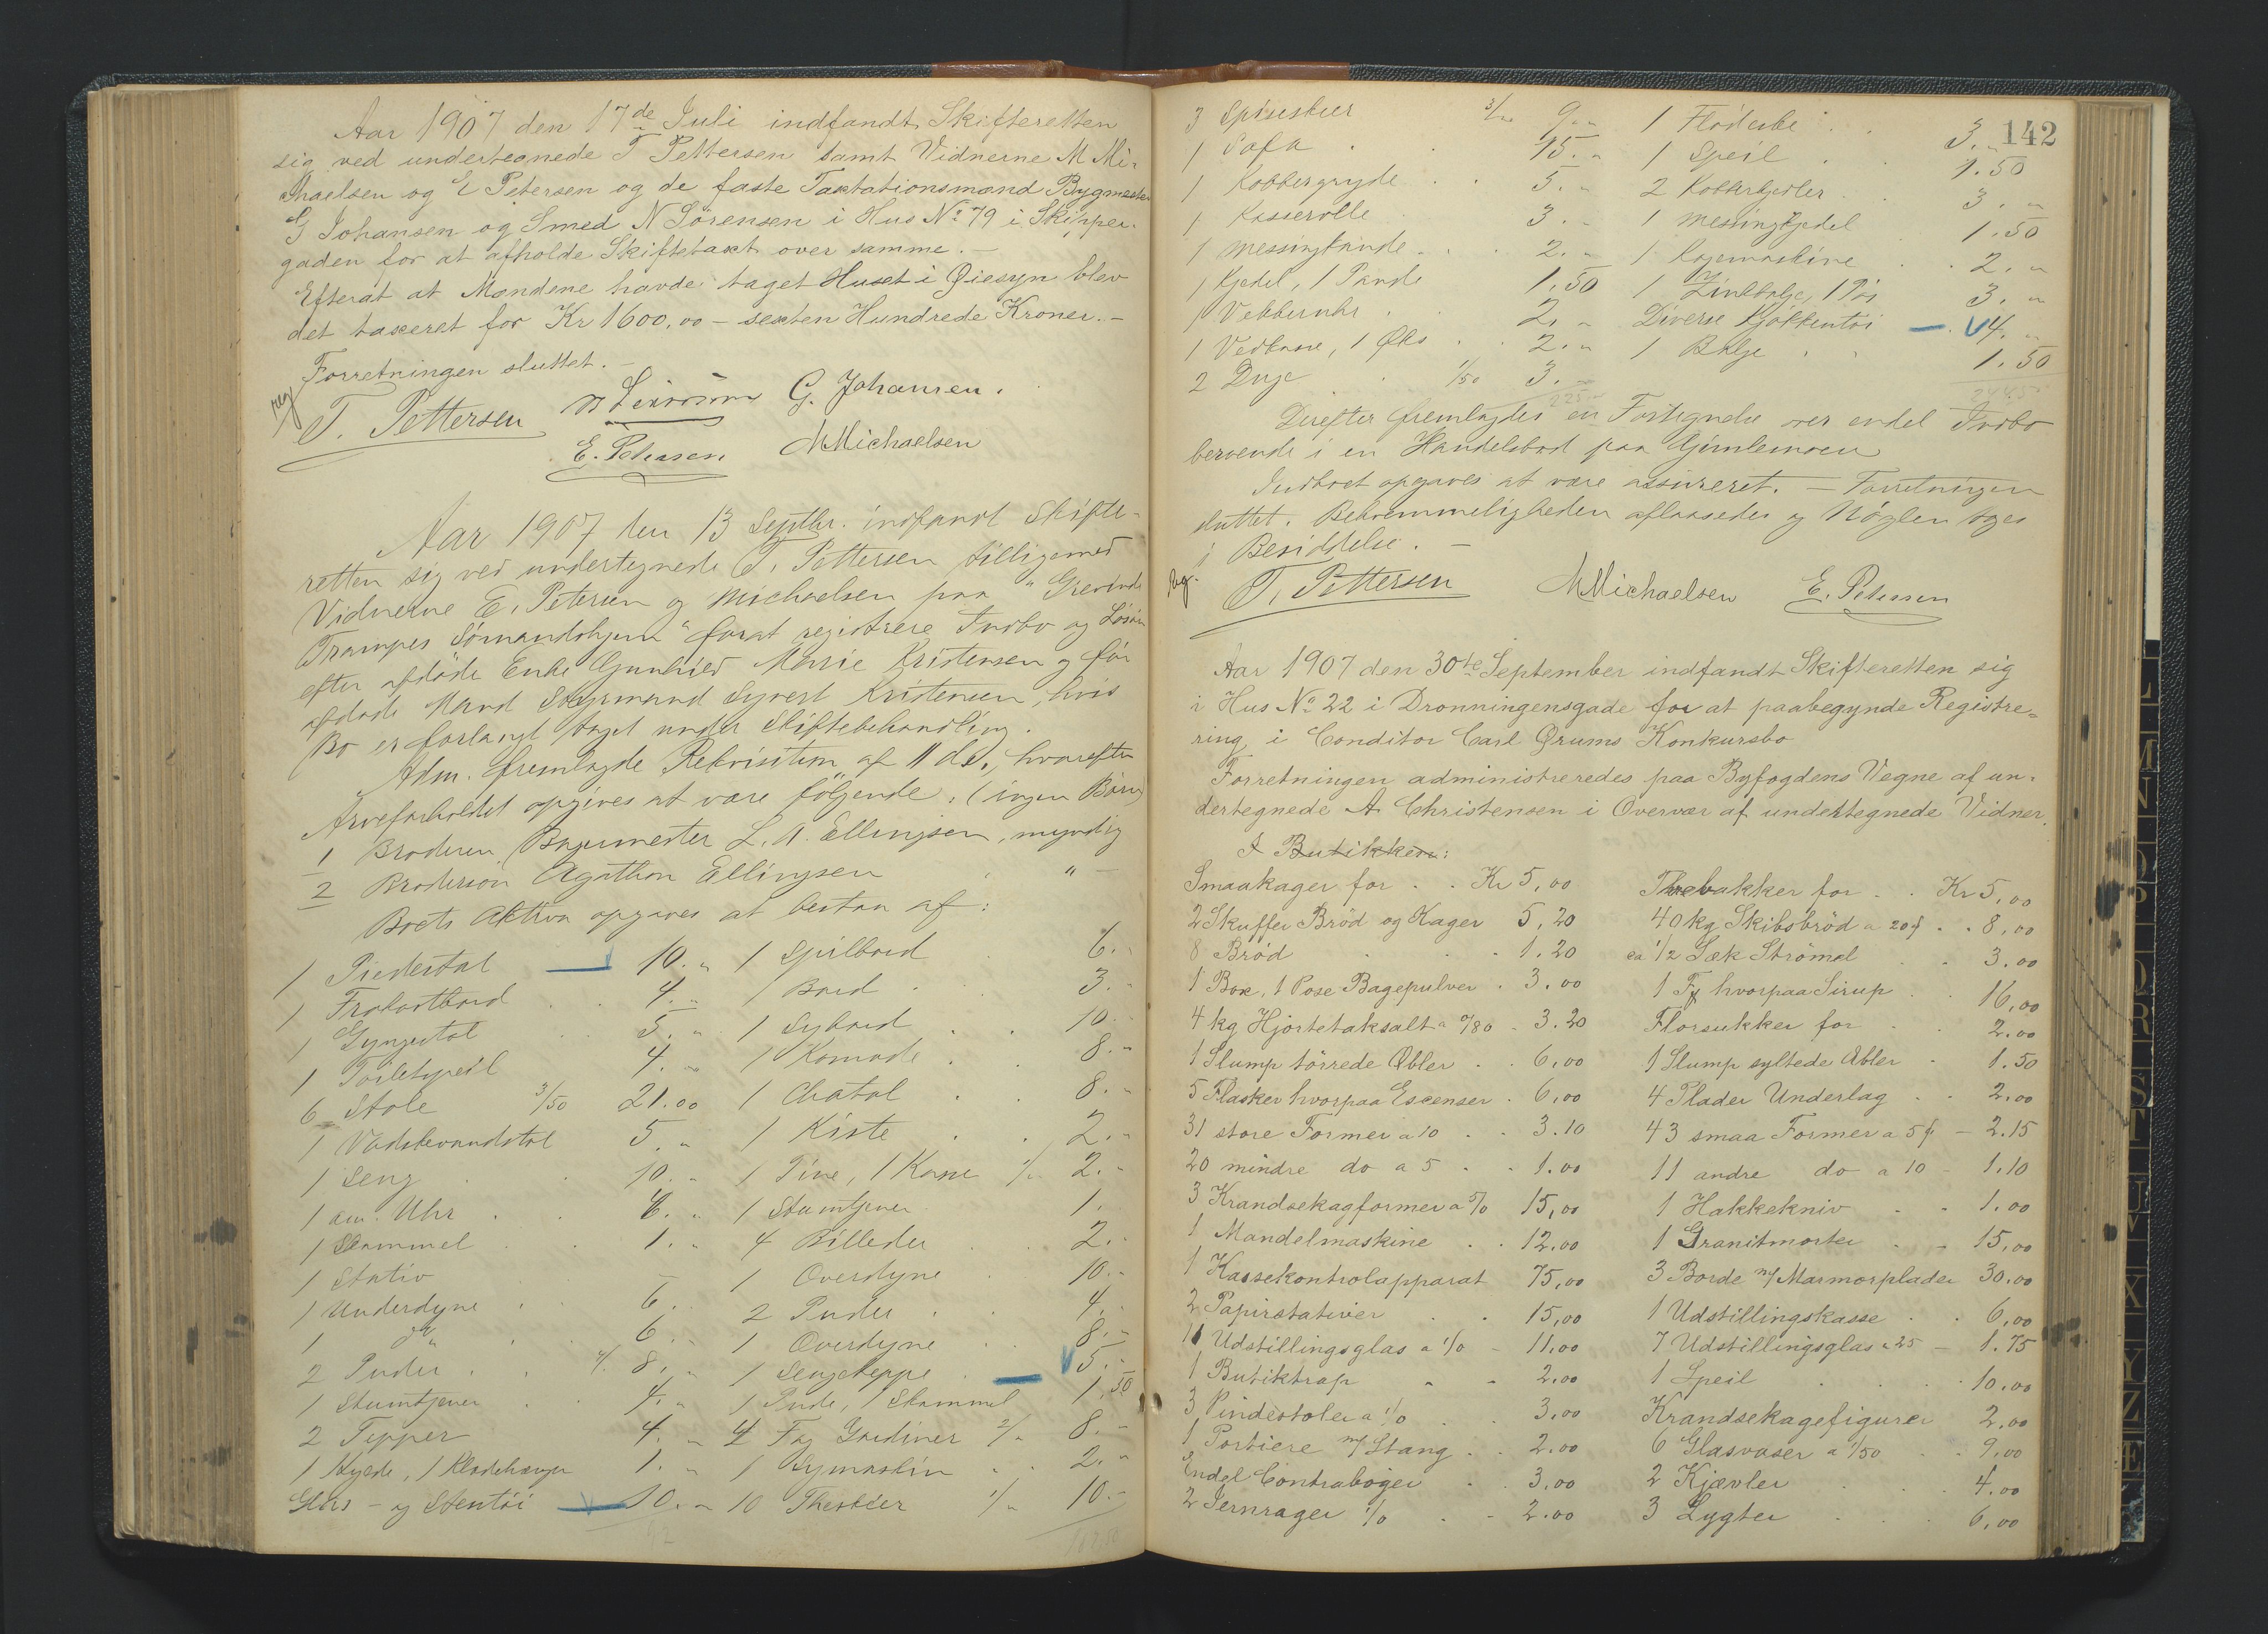 Aar 1907 den 17de Juli indfandt Skifteretten
sig ved undertegnede T Pettersen samt Vidnerne M Mi-
chaelsen og E Petersen og de faste Taxtationsmænd Bygmester
G Johansen og Smed N Sørensen i Hus No 79 i Skipper-
gaden for at afholde Skiftetaxt over samme. –
Efterat at Mændene havde taget Huset i Øiesyn blev
det taxeret for Kr 1600,00 – sexten Hundrede Kroner. –
Forretningen sluttet. –
reg
T. Pettersen N Sørensen G. Johansen.
E. Petersen MMichaelsen
Aar 1907 den 13 Septbr. indfandt Skifte-
retten sig ved undertegnede T. Pettersen tilligemed
Vidnerne E. Petersen og Michaelsen paa "Grevinde
Trampes Sømandshjem" forat registrere Indbo og Løsøre
efter afdøde Enke Gunhild Marie Kristensen og før
afdøde Mand Styrmand Syvert Kristensen, hvis
Bo er forlangt taget under Skiftebehandling.
Adm. fremlagde Rekvisition af 11 ds., hvorefter
Arveforholdet opgives at være følgende: (ingen Børn)
1 Broderen Bagermester L. A. Ellingsen, myndig
2 Brodersøn Agathon Ellingsen " –
Boets Aktiva opgaves at bestaa af:
1 Piedestal 10. " 1 Spilbord 6. "
1 Frokostbord 4. " 1 Bord 3. "
1 Gyngestol 5. " 1 Sybord 10. "
1 Toiletspeil 4. " 1 Komode 8. "
6 Stole 3/50 21.00 1 Chatol 8. "
1 Vadskevandstol 5. " 1 Kiste 2. "
1 Seng 10. " 1 Tine, 1 Kasse 1/" 2. "
1 am. Uhr 6. " 1 Stumtjener 1.
1 Skammel 1. " 4 Billeder 2. "
1 Stativ – 1 Overdyne 10. "
1 Underdyne 6. " 2 Puder 4. "
1 do 6. " 1 Overdyne 8. "
2 Puder 4/. 8. " 1 Sengeteppe 5. "
1 Stumtjener 4. " 1 Pude, 1 Skammel 1.50
2 Tepper 4. " 4 Fag Gardiner 2/" 8. "
1 Hylde, 1 Klædehænger 1. " 1 Symaskin 2. "
Glas – og Stentøi 10. " 10 Theskeer 1/" 10. "
142
3 Spiseskeer 3/" 9. " 1 Flødeske 3. "
1 Sofa 15. " 1 Speil 1.50
1 Kobbergryde 5. " 2 Kobberkjedler 3. "
1 Kasserolle 3. " 1 Messingkjedel 1.50
1 Messingkande 2. " 1 Kogemaskine 2. "
1 Kjedel, 1 Pande 1.50 1 Zinkbalje, 3. "
1 Vekkeruhr 2. " Diverse Kjøkkentøi 4. "
1 Vedkasse, 1 Øks 2. " 1 Balje 1.50
2 Duge 1/50 3. "
Derefter fremlagdes en Fortegnelse over endel Indbo
beroende i en Handelsbod paa Gimlemoen
Indboet opgaves at være assureret. – Forretningen
sluttet. Bekvemmeligheden aflaasedes og Nøglen toges
i Besiddelse. –
reg.
T. Pettersen MMichaelsen E. Petersen
Aar 1907 den 30te September indfandt Skifteretten sig
i Hus No 22 i Dronningensgade for at paabegynde Registre-
ring i Conditor Carl Ørums Konkursbo
Forretningen administreredes paa Byfogdens Vegne af un-
dertegnede A. Christensen i Overvær af undertegnede Vidner.
I Butikken:
Smaakager for Kr 5,00 Thebakker for Kr 5,00
2 Skuffer Brød og Kager 5,20 40 kg Skibsbrød a 20 ø 8,00
8 Brød 1.20 ca 1/2 Sæk Strømel 3.00
1 Box, 1 Pose Bagepulver 3.00 1 Fj hvorpaa Sirup 16,00
4 kg Hjortetaksalt a 0/80 3.20 Florsukker for 2.00
1 Slump tørrede Æbler 6,00 1 Slump syltede Æbler 1.50
5 Flasker hvorpaa Escenser 6,00 4 Plader Underlag 2.00
31 store Former a 10 3.10 43 smaa Former a 5 ø 2.15
20 mindre do a 5 1.00 11 andre do a 10 1.10
3 Krandsekagformer a 5/0 15,00 1 Hakkekniv 1.00
1 Mandelmaskine 12.00 1 Granitmorter 15,00
1 Kassekontrolapparat 75,00 3 Borde m/ Marmorplader 30.00
2 Papirstativer 15,00 1 Udstillingskasse 6,00
11 Udstillingsglas a 1/0 11,00 7 Udstillingsglas a 25 1.75
1 Butiktrap 2.00 1 Speil 10.00
3 Pindestoler a 1/0 3,00 Krandsekagefigurer 2.00
1 Portiere m/ Stang 2.00 6 Glasvaser a 1/50 9,00
Endel Contrabøger 3,00 2 Kjævler 4.00
2 Jernrager 1/0 2.00 3 Lygter 6,00